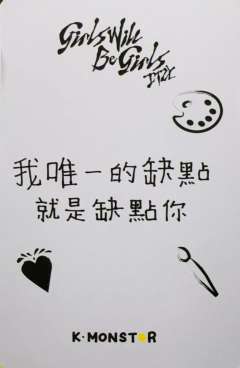 Girls Will
Be Girls
ITZY
我唯一的缺點
就是缺點你
K·MONSTAR